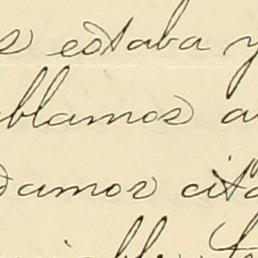 s estaba y
blamos a
damos cita